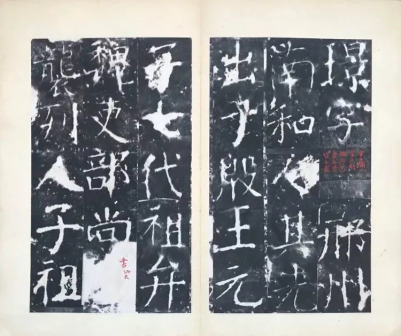 璟字邢州
南和人其先
出于殷王元
子七代祖弁
魏吏部尚
襲列人子祖